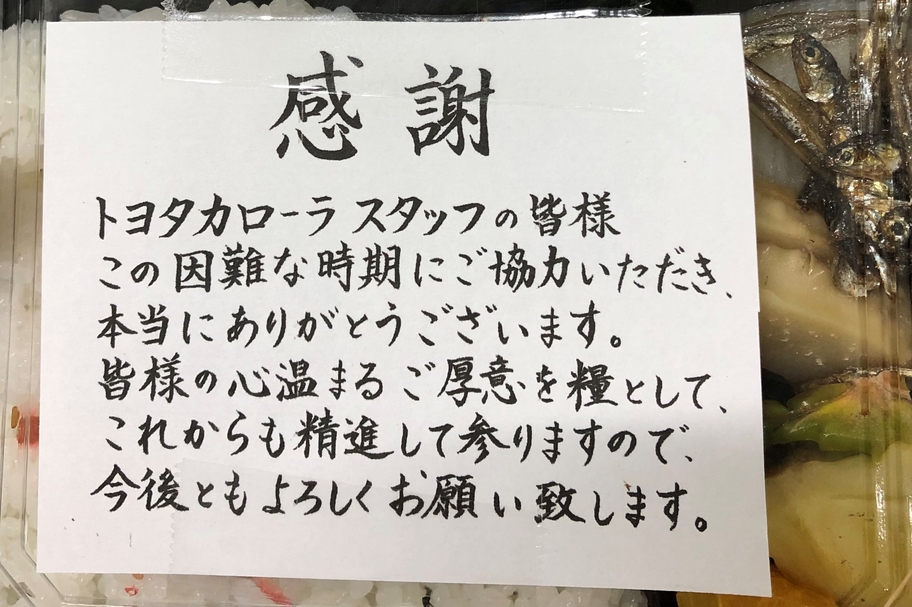 感謝
トヨタカローラ スタッフの皆様
この因難な時期にご協力いただき、
本当にありがとうございます。
皆様の心温まるご厚意を糧として、
これからも精進して参りますので、
今後ともよろしくお願い致します。